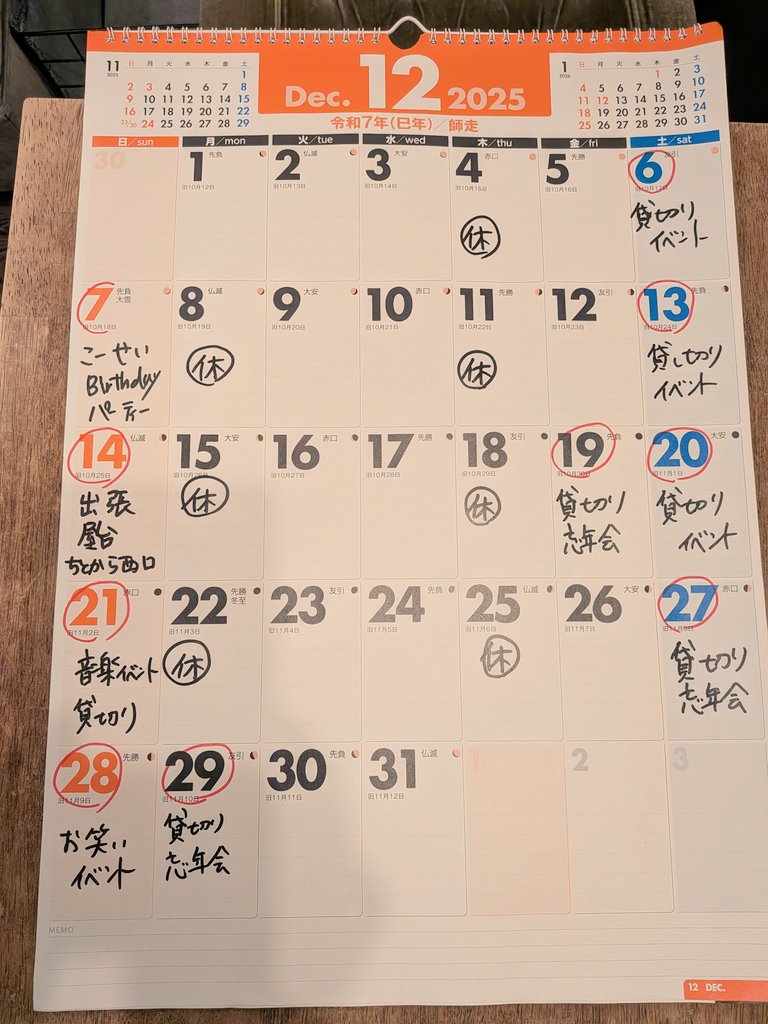 11
2025
日 月 火 水 木 金 土
1
2 3 4 5 6 7 8
9 10 11 12 13 14 15
16 17 18 19 20 21 22
23/30 24 25 26 27 28 29
Dec. 12 2025
1
2026
日 月 火 水 木 金 土
1 2 3
4 5 6 7 8 9 10
11 12 13 14 15 16 17
18 19 20 21 22 23 24
25 26 27 28 29 30 31
令和7年(巳年)/師走
日/sun 月/mon 火/tue 水/wed 木/thu 金/fri 土/sat
30
1 先負
旧10月12日
2 仏滅
旧10月13日
3 大安
旧10月14日
4 赤口
旧10月15日
休
5 先勝
旧10月16日
6 友引
旧10月17日
貸切り
イベント
7 先負
大雪
旧10月18日
こーせい
Birthday
パーティー
8 仏滅
旧10月19日
休
9 大安
旧10月20日
10 赤口
旧10月21日
11 先勝
旧10月22日
休
12 友引
旧10月23日
13 先負
旧10月24日
貸し切り
イベント
14 仏滅
旧10月25日
出張
屋台
ちとから西口
15 大安
旧10月26日
休
16 赤口
旧10月27日
17 先勝
旧10月28日
18 友引
旧10月29日
休
19 先負
旧10月30日
貸切り
忘年会
20 大安
旧11月1日
貸切り
イベント
21 赤口
旧11月2日
音楽イベント
貸切り
22 先勝
冬至
旧11月3日
休
23 友引
旧11月4日
24 先負
旧11月5日
25 仏滅
旧11月6日
休
26 大安
旧11月7日
27 赤口
旧11月8日
貸切り
忘年会
28 先勝
旧11月9日
お笑い
イベント
29 友引
旧11月10日
貸切り
忘年会
30 先負
旧11月11日
31 仏滅
旧11月12日
1
2
3
MEMO
12 DEC.